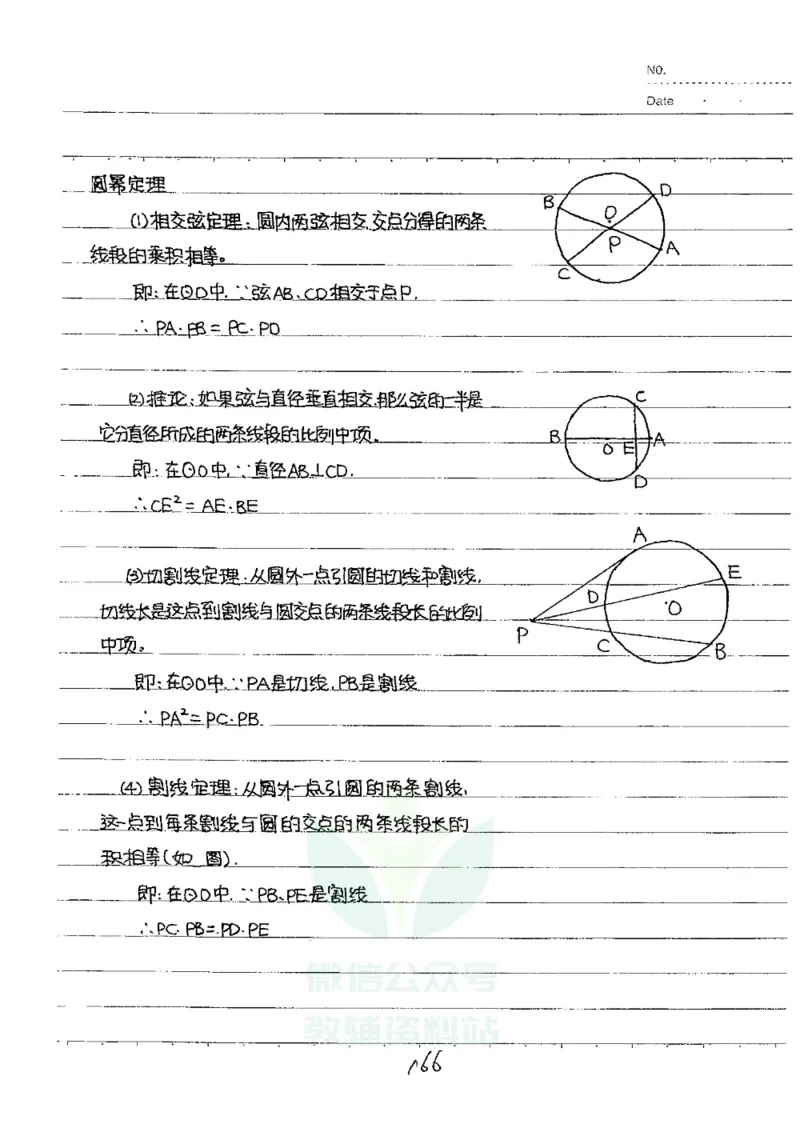 NO.
Date
圆幂定理
(1)相交弦定理:圆内两弦相交,交点分得的两条
线段的乘积相等。
即:在⊙O中,∵弦AB、CD相交于点P,
∴PA·PB=PC·PD
B
D
O
P
A
C
(2)推论:如果弦与直径垂直相交,那么弦的一半是
它分直径所成的两条线段的比例中项。
即:在⊙O中,∵直径AB⊥CD,
∴CE²=AE·BE
C
B
O
E
A
D
(3)切割线定理:从圆外一点引圆的切线和割线,
切线长是这点到割线与圆交点的两条线段长的比例
中项。
即:在⊙O中,∵PA是切线,PB是割线
∴PA²=PC·PB
A
E
D
·O
P
C
B
(4)割线定理:从圆外一点引圆的两条割线,
这一点到每条割线与圆的交点的两条线段长的
积相等(如 图).
即:在⊙O中,∵PB、PE是割线
∴PC·PB=PD·PE
微信公众号
教辅资料站
166